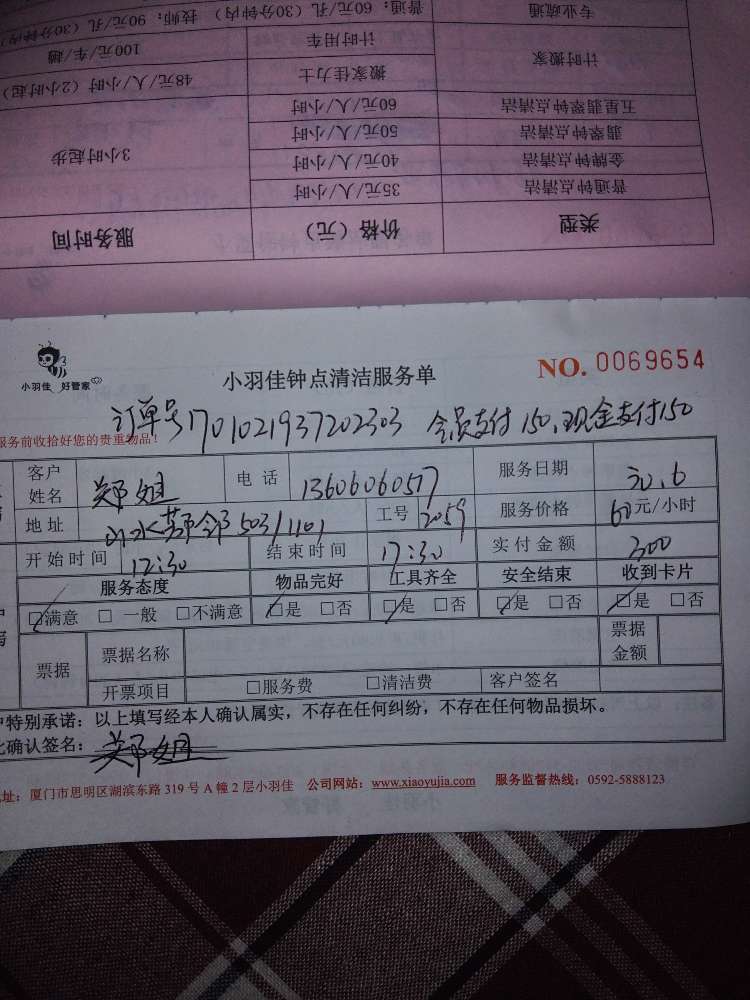 专业疏通 普通：60元/孔（30分钟内） 技师：90元/孔（30分钟内）
计时搬家 计时用车 100元/车/趟
搬家佳力士 48元/人/小时（2小时起）
五星翡翠钟点清洁 60元/人/小时 3小时起步
翡翠钟点清洁 50元/人/小时
金牌钟点清洁 40元/人/小时
普通钟点清洁 35元/人/小时
类型 价格（元） 服务时间
小羽佳 好管家
小羽佳钟点清洁服务单
NO. 0069654
订单号1701021937202303 会员支付150、现金支付150
服务前收拾好您的贵重物品！
客户姓名 郑姐 电话 13606060517 服务日期 30.6
地址 503/1101 工号 2059 服务价格 60元/小时
开始时间 12:30 结束时间 17:30 实付金额 300
服务态度 物品完好 工具齐全 安全结束 收到卡片
☑满意 □一般 □不满意 ☑是 □否 ☑是 □否 ☑是 □否 ☑是 □否
票据 票据名称 票据金额
开票项目 □服务费 □清洁费 客户签名
特别承诺：以上填写经本人确认属实，不存在任何纠纷，不存在任何物品损坏。
确认签名：郑姐
址：厦门市思明区湖滨东路 319 号 A 幢 2 层小羽佳 公司网站：www.xiaoyujia.com 服务监督热线：0592-5888123